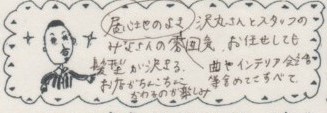 居心地のよさ 沢丸さんとスタッフの
みなさんの雰囲気、お任せしても
髪型が決まる。 曲やインテリア
等含めてすべて。
かわるのが楽しみ